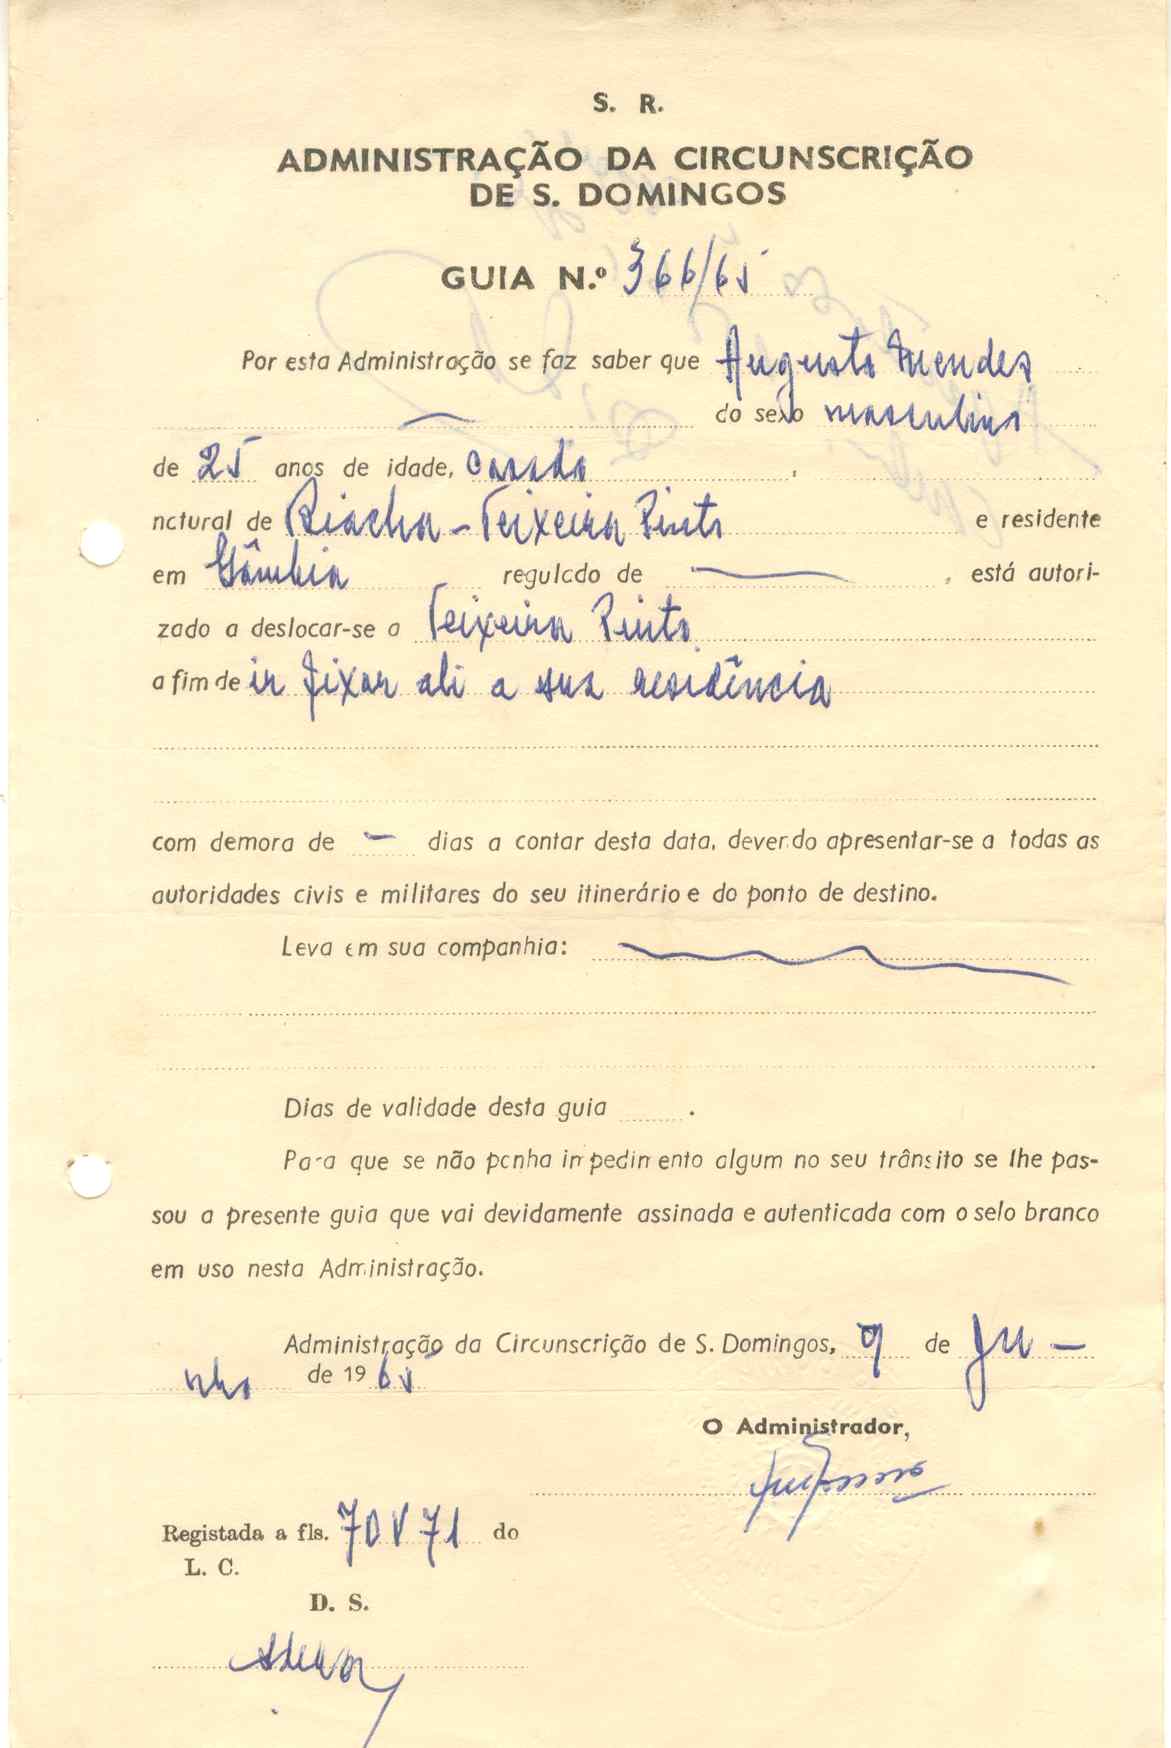 S. R.
ADMINISTRAÇÃO DA CIRCUNSCRIÇÃO
DE S. DOMINGOS
GUIA N.º 366/65
Por esta Administração se faz saber que Augusto Mendes
do sexo masculino
de 25 anos de idade, casado,
natural de Riacha - Teixeira Pinto e residente
em Gâmbia regulado de —, está autori-
zado a deslocar-se a Teixeira Pinto
a fim de ir fixar ali a sua residência
com demora de — dias a contar desta data, devendo apresentar-se a todas as
autoridades civis e militares do seu itinerário e do ponto de destino.
Leva em sua companhia:
Dias de validade desta guia ........ .
Para que se não ponha impedimento algum no seu trânsito se lhe pas-
sou a presente guia que vai devidamente assinada e autenticada com o selo branco
em uso nesta Administração.
Administração da Circunscrição de S. Domingos, 9 de Ju-
nho de 1965
O Administrador,
Registada a fls. 70 V 71 do
L. C.
D. S.